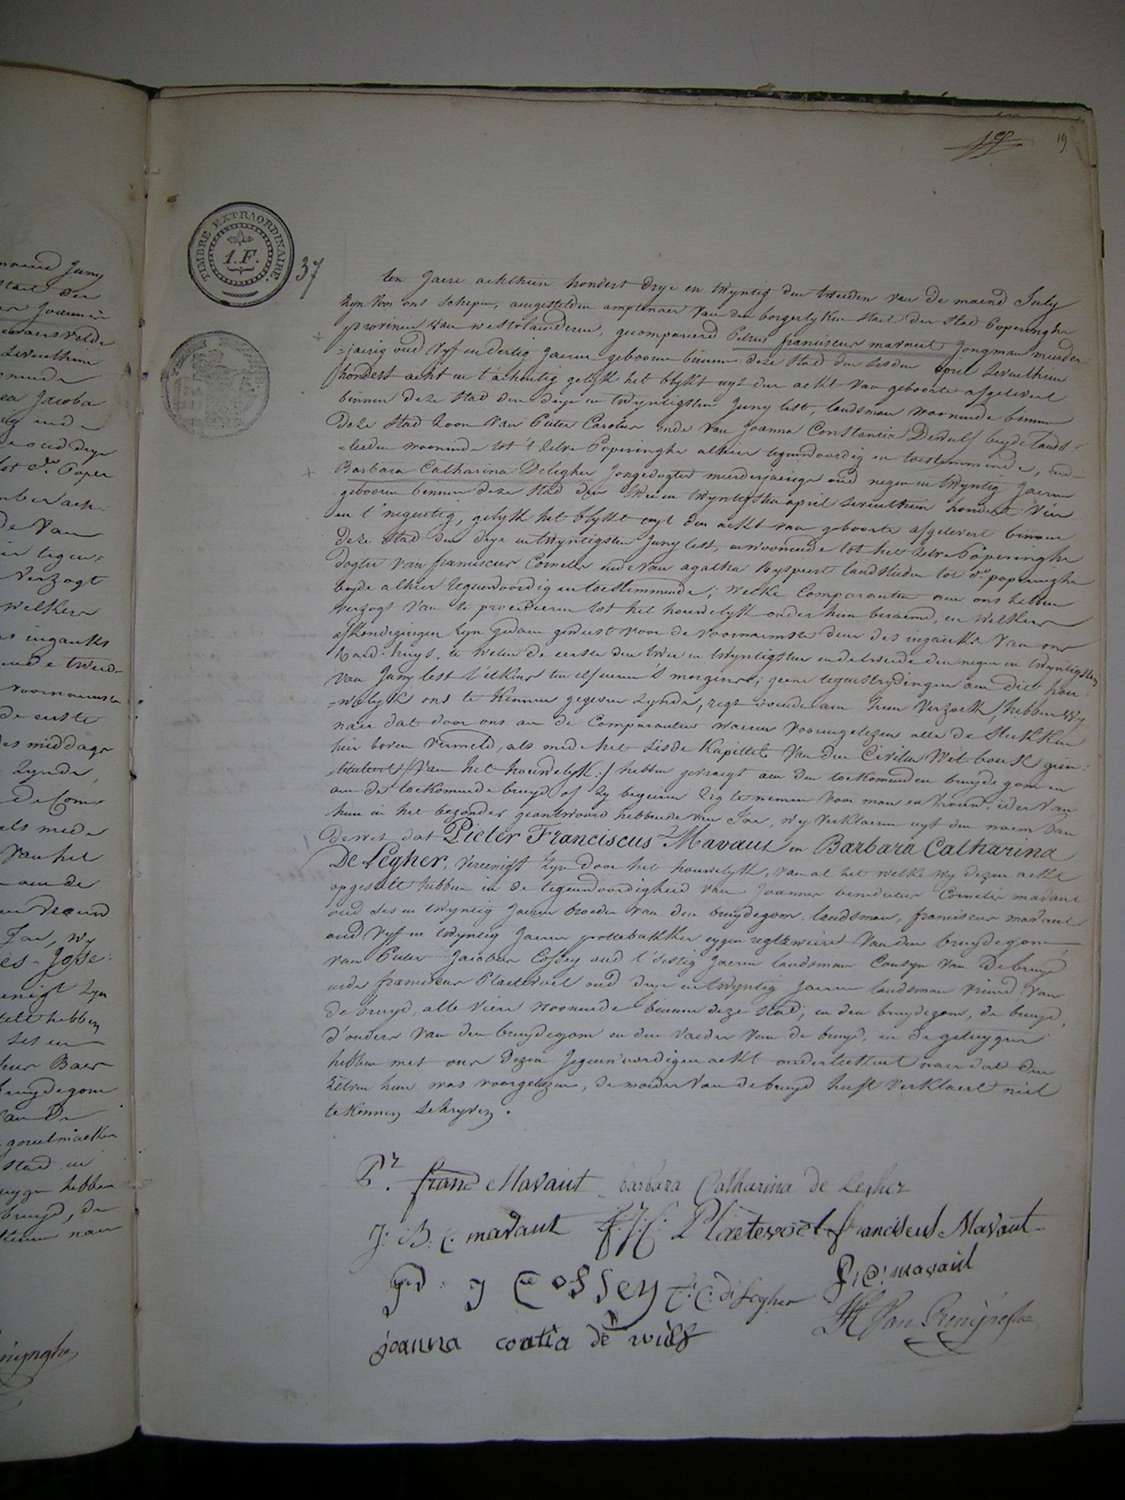 19
19
TIMBRE EXTRAORDINAIRE.
1.F.
37
ten Jaere achthien hondert drye en twyntig den tweeden van de maend July
zyn voor ons schepen, aengestelden amptenaer van den borgerlyken staet der stad Poperinghe
provincie van westvlaenderen, gecompareerd Petrus franciscus mavaut jongman meerder
-jaerig oud vyf en dertig Jaeren gebooren binnen deze stad den sesden april seventhien
hondert acht en t'achentig gelyk het blykt uyt den ackt van geboorte afgelevert
binnen deze stad den drye en twyntigsten Juny lest, landsman woonende binnen
deze stad zoon van Pieter Carolus ende van Joanna Constantia Dewulf beyde lands-
-lieden woonende tot 't zelve Poperinghe alhier tegenwoordig en toestemmende, ende
Barbara Catharina Delegher Jongedogter meerderjaerige oud negen en twyntig Jaeren
gebooren binnen deze stad den twee en twyntigsten april seventhien hondert vier
en t'negentig, gelyk het blykt uyt den ackt van geboorte afgelevert binnen
deze stad den drye en twyntigsten Juny lest, en woonende tot het zelve Poperinghe
dogter van franciscus Cornelis ende van agatha landslieden tot d° poperinghe
beyde alhier tegenwoordig en toestemmende; welke Comparanten aen ons hebben
verzogt van te procederen tot het houwelyk onder hun beraemd, en welkers
afkondigingen zyn gedaen geweest voor de voornaemste deur des ingancks van ons
Raed-huys, te weten de eerste den twee en twyntigsten ende tweede den negen en twyntigsten
van Juny lest t'elkens ten elf uren 's morgens; geene tegenstrydingen aen die hou-
-welyk ons te kennen gegeven zynde, regt doende aen hun verzoek, hebben wy
naer dat door ons aen de Comparanten waeren voorengelezen alle de stukken
hier boven vermeld, als mede het sesde kapittel van den Civilen Wet-boek gein-
tituleert /:van het houwelyk:/ hebben gevraegt aen den toekomenden bruydegom en
aen de toekomende bruyd of zy begeeren zig te nemen voor man en vrouw: ider van
hun in het bezonder geantwoord hebbende van Jae, wy verklaeren uyt den naem van
De wet, dat Pieter Franciscus Mavaut en Barbara Catharina
De Legher, vereenigt zyn door het houwelyk, van al het welke wy dezen ackt
opgestelt hebben in de tegenwoordigheid van Joannes benedictus Cornelis mavaut
oud ses en twyntig Jaeren broeder van den bruydegom, landsman, franciscus mavaut
oud vyf en twyntig Jaeren pottebakker eygen regtzweire van den bruydegom
van Pieter Jacobus Cossey oud t'sestig Jaeren landsman Cousyn van de bruyd
ende franciscus Plaetevoet oud drye en twyntig Jaeren landsman vriend van
de bruyd, alle viere woonende binnen deze stad, en den bruydegom, de bruyd,
d'ouders van den bruydegom en den vaeder van de bruyd, en de getuygen
hebben met ons dezen Jegenwoordigen ackt onderteekent naer dat den
zelven hun was voorgelezen, de moeder van de bruyd heeft verklaert niet
te konnen schryven.
Pr. franc Mavaut barbara Catharina de Legher
J: B: C: mavaut F: J: C: Plaetevoet franciscus Mavaut
J Cossey F: C: de Legher P: C: mavaut
joanna contia de wulf Van Renynghe